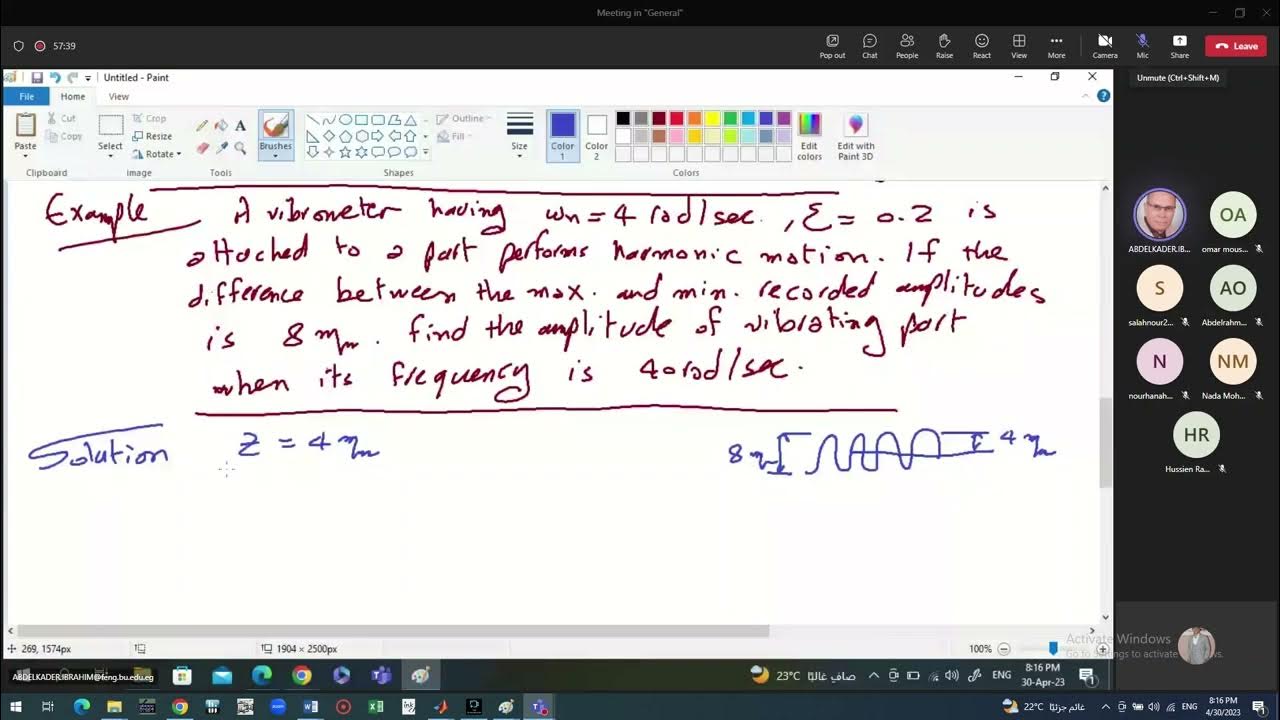 Meeting in "General"
57:39
Pop out Chat People Raise React View More Camera Mic Share Leave
Unmute (Ctrl+Shift+M)
Untitled - Paint
File Home View
Paste Cut Copy Clipboard
Select Crop Resize Rotate Image
Tools
Brushes
Outline Fill Shapes
Size
Color 1 Color 2 Edit colors Edit with Paint 3D Colors
Example A vibrometer having ωn = 4 rad/sec. , ξ = 0.2 is
attached to a part performs harmonic motion. If the
difference between the max. and min. recorded amplitudes
is 8 mm. find the amplitude of vibrating part
when its frequency is 40 rad/sec.
Solution Z = 4 mm
8 mm 4 mm
ABDELKADER.IB...
OA
omar mous...
S
salahnour2...
AO
Abdelrahm...
N
nourhanah...
NM
Nada Moh...
HR
Hussien Ra...
269, 1574px
1904 × 2500px
100%
Activate Windows
Go to Settings to activate Windows.
ABDELKADER.IBRAHIM@feng.bu.edu.eg
23°C صافٍ غالبًا ENG 8:16 PM
30-Apr-23
22°C غائم جزئيًا ENG 8:16 PM
4/30/2023